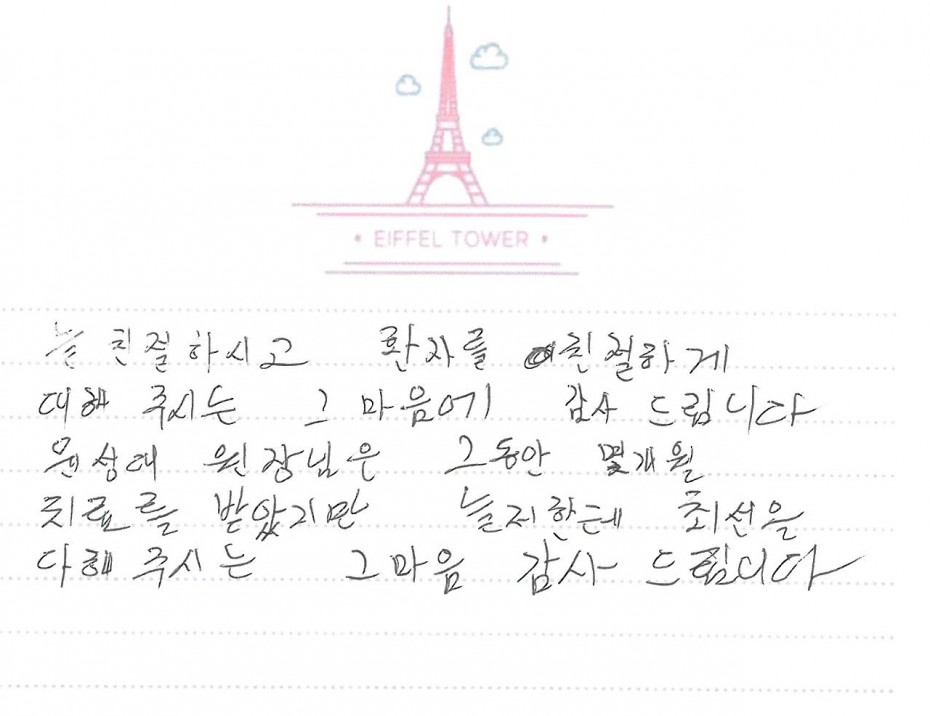 • EIFFEL TOWER •
늘 친절하시고 환자를 친절하게
대해 주시는 그 마음에 감사 드립니다
원장님은 그동안 몇개월
치료를 받았지만 늘 저한테 최선을
다해 주시는 그마음 감사 드립니다